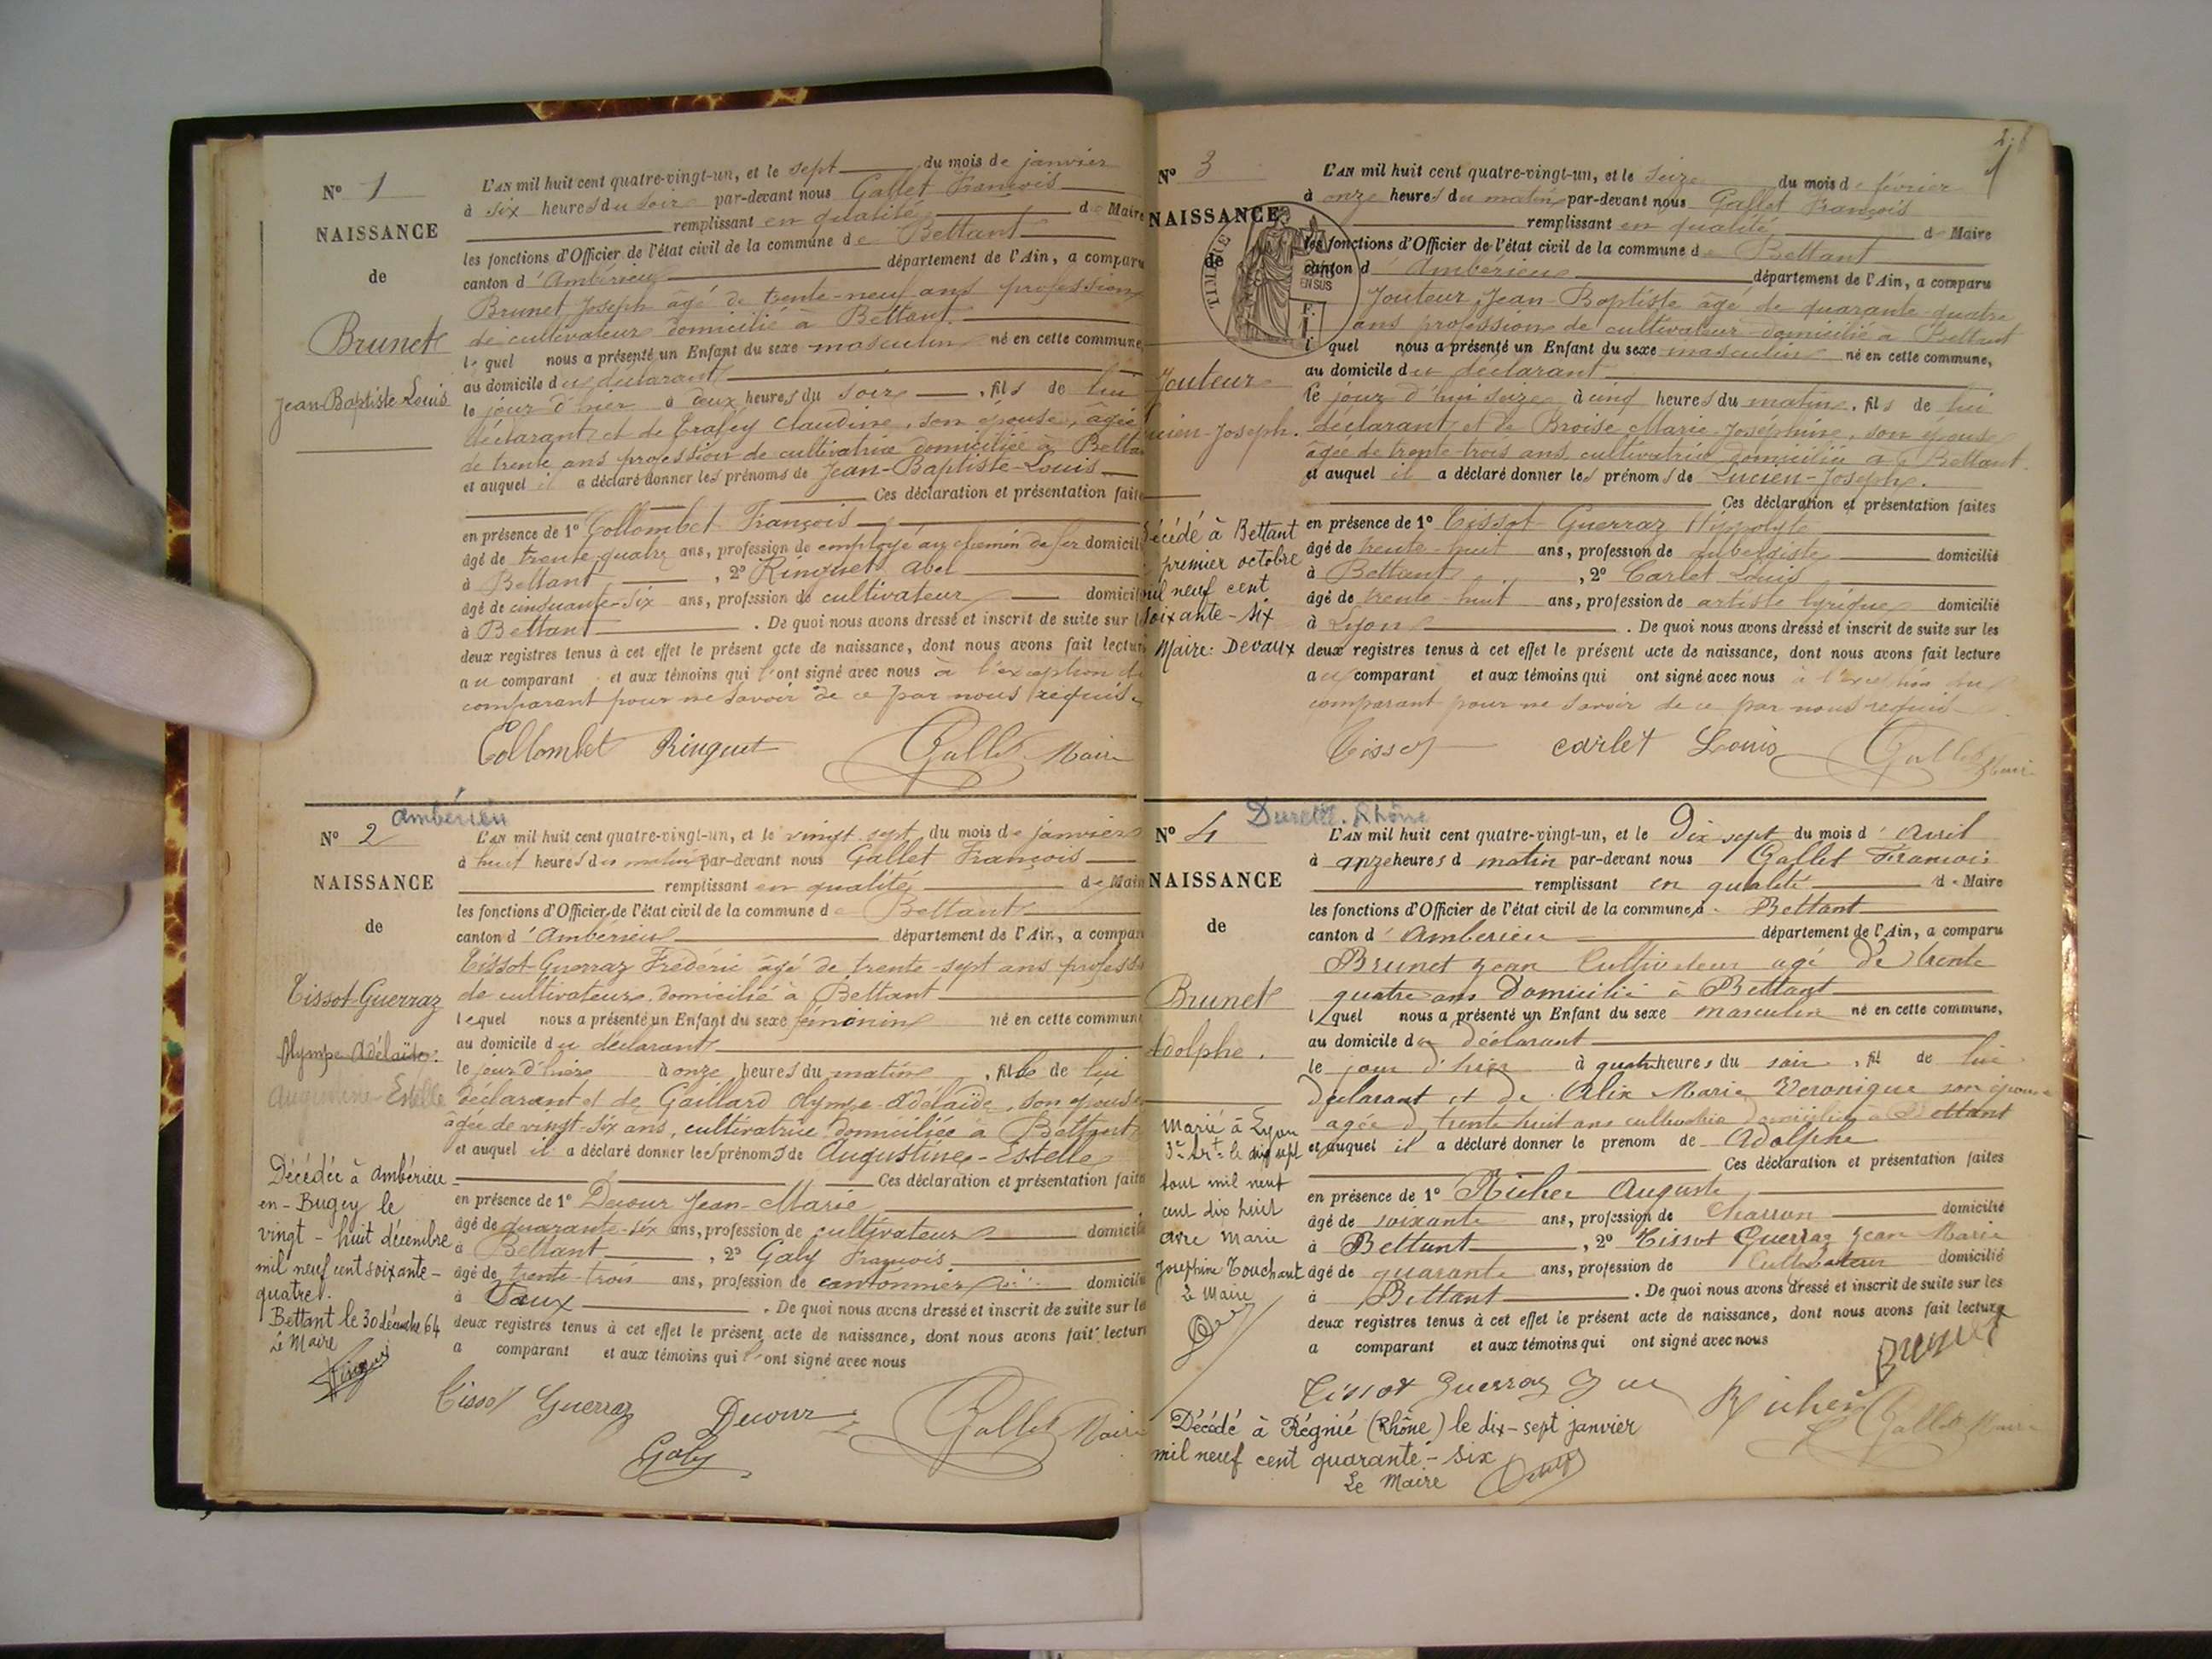 N° 1
NAISSANCE
de
Brunet
Jean-Baptiste Louis
L'AN mil huit cent quatre-vingt-un, et le sept du mois de janvier
à six heures du soir par-devant nous Gallet François
remplissant en qualité de Maire
les fonctions d'Officier de l'état civil de la commune de Bettant
canton d'Ambérieu département de l'Ain, a comparu
Brunet Joseph âgé de trente-neuf ans profession
de cultivateur domicilié à Bettant
lequel nous a présenté un Enfant du sexe masculin né en cette commune,
au domicile du déclarant
le jour d'hier à deux heures du soir, fils de lui
déclarant et de Trafey Claudine, son épouse, âgée
de trente ans profession de cultivatrice domiciliée à Bettant
et auquel il a déclaré donner les prénoms de Jean-Baptiste-Louis
Ces déclaration et présentation faites
en présence de 1° Collombet François
âgé de trente-quatre ans, profession de employé au chemin de fer domicilié
à Bettant, 2° Ringuet Abel
âgé de cinquante-six ans, profession de cultivateur domicilié
à Bettant. De quoi nous avons dressé et inscrit de suite sur les
deux registres tenus à cet effet le présent acte de naissance, dont nous avons fait lecture
au comparant et aux témoins qui l'ont signé avec nous à l'exception du
comparant pour ne savoir de ce par nous requis.
Collombet Ringuet Gallet Maire
Ambérieu
N° 2
NAISSANCE
de
Tissot-Guerraz
Olympe Adélaïde.
Augustine-Estelle
Décédée à Ambérieu-
en-Bugey le
vingt-huit décembre
mil neuf cent soixante-
quatre.
Bettant le 30 décembre 64
Le Maire
L'AN mil huit cent quatre-vingt-un, et le vingt-sept du mois de janvier
à huit heures du matin par-devant nous Gallet François
remplissant en qualité de Maire
les fonctions d'Officier de l'état civil de la commune de Bettant
canton d'Ambérieu département de l'Ain, a comparu
Tissot-Guerraz Frédéric âgé de trente-sept ans profession
de cultivateur domicilié à Bettant
lequel nous a présenté un Enfant du sexe féminin né en cette commune
au domicile du déclarant
le jour d'hier à onze heures du matin, fille de lui
déclarant et de Gaillard Olympe-Adélaïde, son épouse
âgée de vingt-six ans, cultivatrice domiciliée à Bettant
et auquel il a déclaré donner les prénoms de Augustine-Estelle
Ces déclaration et présentation faites
en présence de 1° Decour Jean-Marie
âgé de quarante-six ans, profession de cultivateur domicilié
à Bettant, 2° Galy François
âgé de trente-trois ans, profession de cantonnier domicilié
à Vaux. De quoi nous avons dressé et inscrit de suite sur les
deux registres tenus à cet effet le présent acte de naissance, dont nous avons fait lecture
a comparant et aux témoins qui l'ont signé avec nous
Tissot Guerraz Decour Gallet Maire
Galy
N° 3
NAISSANCE
de
Jouteur
Lucien-Joseph.
Décédé à Bettant
premier octobre
mil neuf cent
soixante-six
Maire: Devaux
TIMBRE
EN SUS
1
L'AN mil huit cent quatre-vingt-un, et le seize du mois de février
à onze heures du matin par-devant nous Gallet François
remplissant en qualité de Maire
les fonctions d'Officier de l'état civil de la commune de Bettant
canton d'Ambérieu département de l'Ain, a comparu
Jouteur Jean-Baptiste âgé de quarante-quatre
ans profession de cultivateur domicilié à Bettant
lequel nous a présenté un Enfant du sexe masculin né en cette commune,
au domicile du déclarant
le jour d'hui seize à cinq heures du matin, fils de lui
déclarant et de Broise Marie-Joséphine, son épouse
âgée de trente-trois ans, cultivatrice domiciliée à Bettant.
et auquel il a déclaré donner les prénoms de Lucien-Joseph.
Ces déclaration et présentation faites
en présence de 1° Tissot-Guerraz Hippolyte
âgé de trente-huit ans, profession de aubergiste domicilié
à Bettant, 2° Carlet Louis
âgé de trente-huit ans, profession de artiste lyrique domicilié
à Lyon. De quoi nous avons dressé et inscrit de suite sur les
deux registres tenus à cet effet le présent acte de naissance, dont nous avons fait lecture
au comparant et aux témoins qui ont signé avec nous à l'exception du
comparant pour ne savoir de ce par nous requis
Tissot carlet Louis Gallet Maire
Durette. Rhône
N° 4
NAISSANCE
de
Brunet
Adolphe.
Marié à Lyon
3e Art le dix sept
aout mil neuf
cent dix huit
avec Marie
Josephine Touchant
Le Maire
L'AN mil huit cent quatre-vingt-un, et le Dix sept du mois d'Avril
à onze heures d matin par-devant nous Gallet Francois
remplissant en qualité de Maire
les fonctions d'Officier de l'état civil de la commune d Bettant
canton d'Amberieu département de l'Ain, a comparu
Brunet Jean Cultivateur agé De trente
quatre ans Domicilié à Bettant
lequel nous a présenté un Enfant du sexe masculin né en cette commune,
au domicile du déclarant
le jour d'hier à quatre heures du soir, fil de lui
déclarant et de Alix Marie Veronique son épouse
agée d trente huit ans cultivatrice domiciliée à Bettant
et auquel il a déclaré donner le prenom de Adolphe
Ces déclaration et présentation faites
en présence de 1° Richer Auguste
âgé de soixante ans, profession de Charron domicilié
à Bettant, 2° Tissot Guerraz Jean Marie
âgé de quarante ans, profession de Cultivateur domicilié
à Bettant. De quoi nous avons dressé et inscrit de suite sur les
deux registres tenus à cet effet le présent acte de naissance, dont nous avons fait lecture
a comparant et aux témoins qui ont signé avec nous
Brunet
Tissot Guerraz Richer Gallet Maire
Décédé à Régnié (Rhône) le dix-sept janvier
mil neuf cent quarante-six
Le Maire